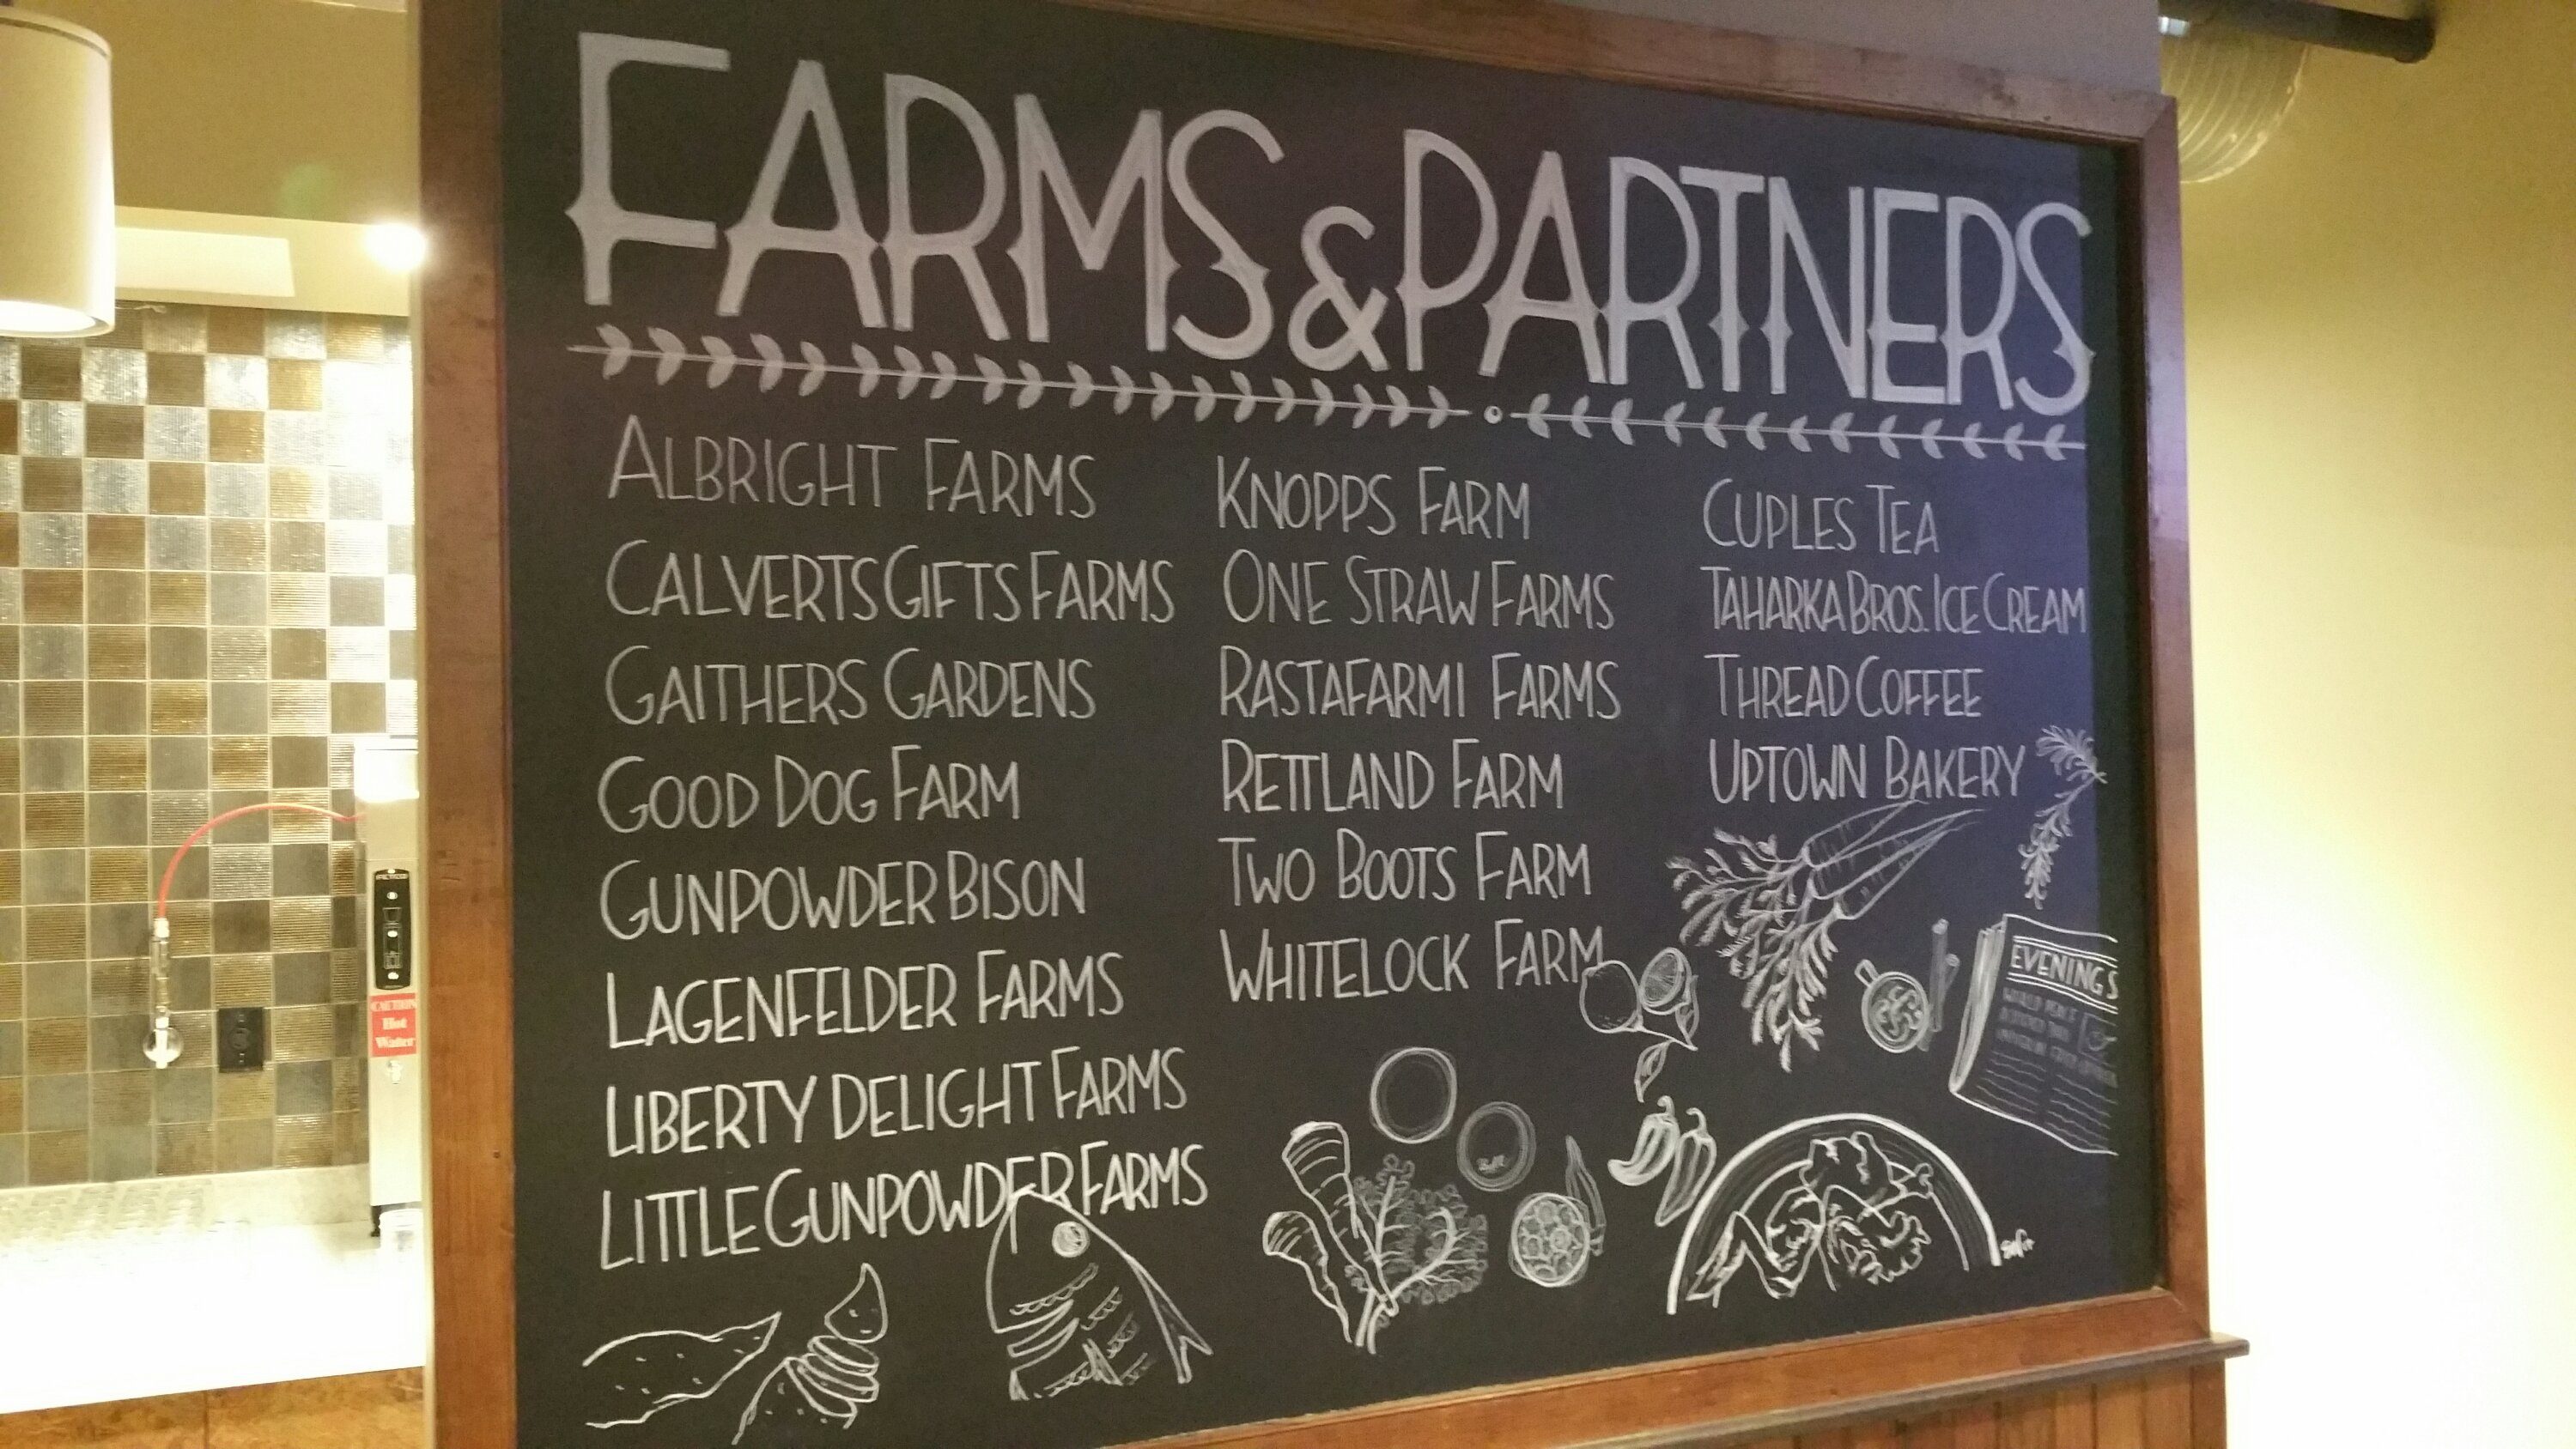 FARMS & PARTNERS
ALBRIGHT FARMS
CALVERTS GIFTS FARMS
GAITHERS GARDENS
GOOD DOG FARM
GUNPOWDER BISON
LAGENFELDER FARMS
LIBERTY DELIGHT FARMS
LITTLE GUNPOWDER FARMS
KNOPPS FARM
ONE STRAW FARMS
RASTAFARMI FARMS
RETTLAND FARM
TWO BOOTS FARM
WHITELOCK FARM
CUPLES TEA
TAHARKA BROS. ICE CREAM
THREAD COFFEE
UPTOWN BAKERY
EVENING S
WORLD PEACE
CAUTION
Hot
Water